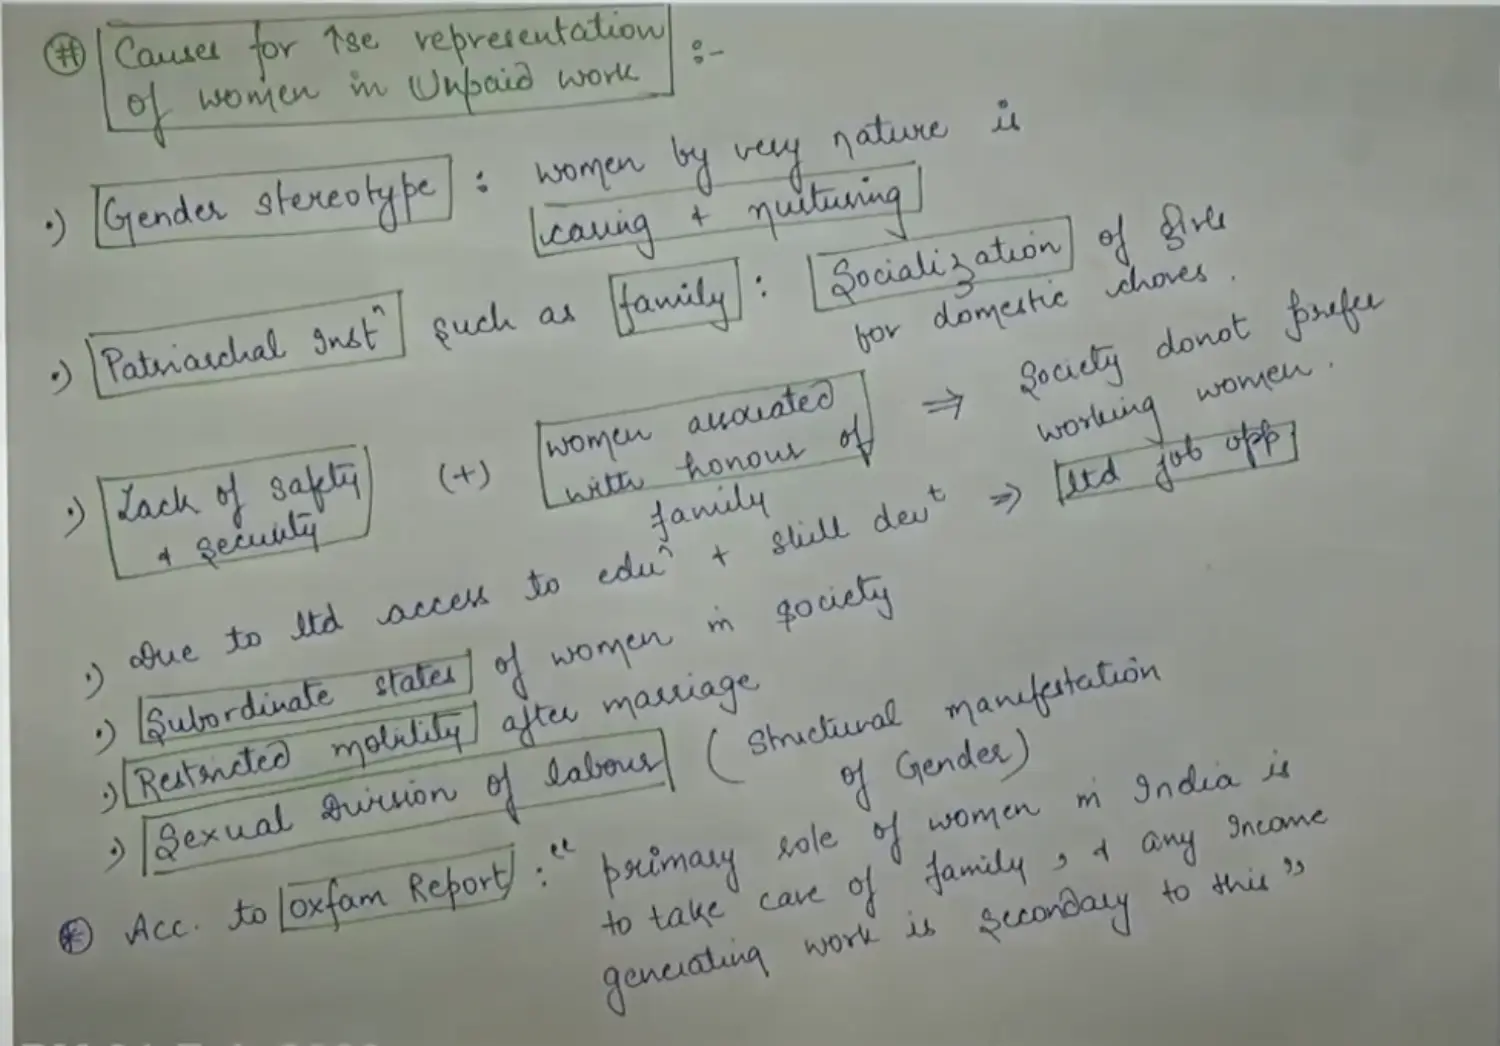 # Causes for ↑se representation
of women in Unpaid work :-
•) Gender stereotype : women by very nature is
caring + nurturing
•) Patriarchal Instⁿ such as family : Socialization of girls
for domestic chores.
•) Lack of safety
& security (+) women associated
with honour of
family ⇒ Society donot prefer
working women.
•) Due to ltd access to eduⁿ + skill devᵗ ⇒ ltd job opp
•) Subordinate states of women in society
•) Restricted mobility after marriage
•) Sexual Division of labour (Structural manifestation
of Gender)
Acc. to Oxfam Report : "primary role of women in India is
to take care of family, & any Income
generating work is secondary to this"